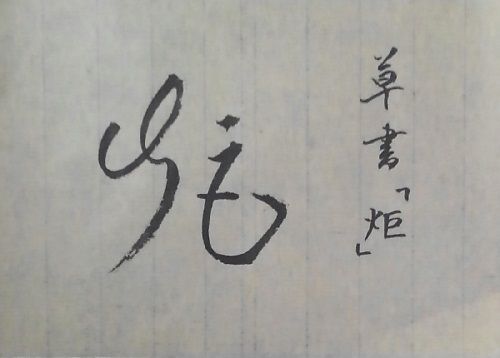 草書「炬」
炬